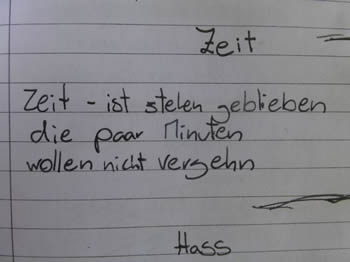 Zeit
Zeit - ist stelen geblieben
die paar Minuten
wollen nicht vergehn
Hass